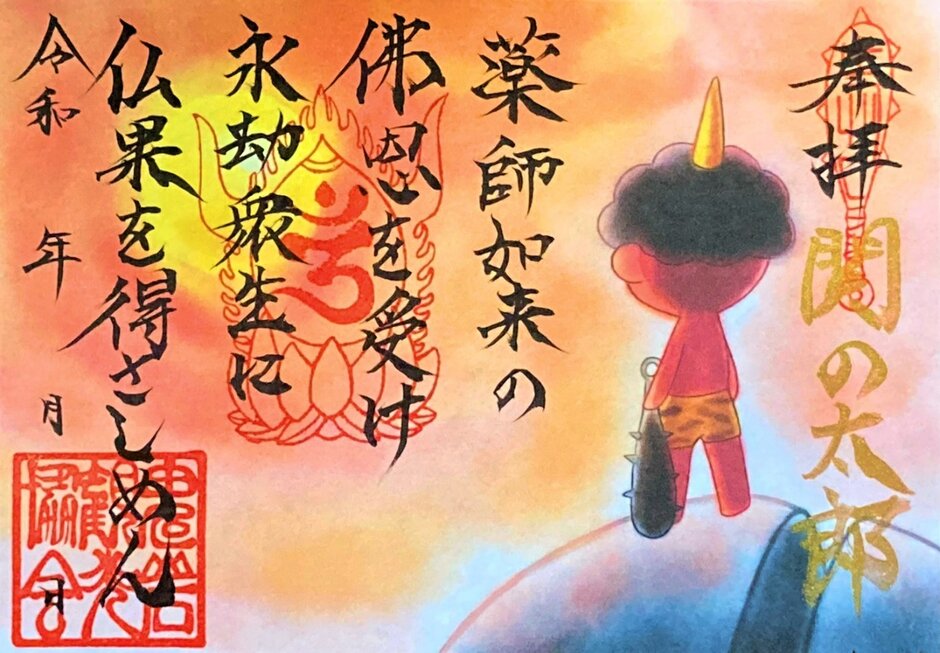 奉拝
関の太郎
薬師如来の
佛恩を受け
永劫衆生に
仏果を得さしめん
令和 年 月 日